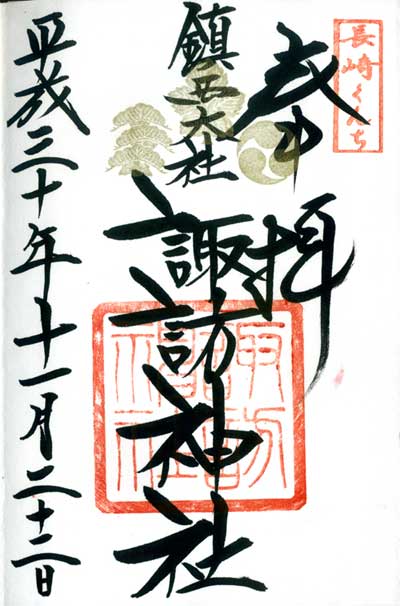 長崎くんち
奉拝
鎮西大社
諏訪神社
諏訪神社
平成三十年十一月二十二日